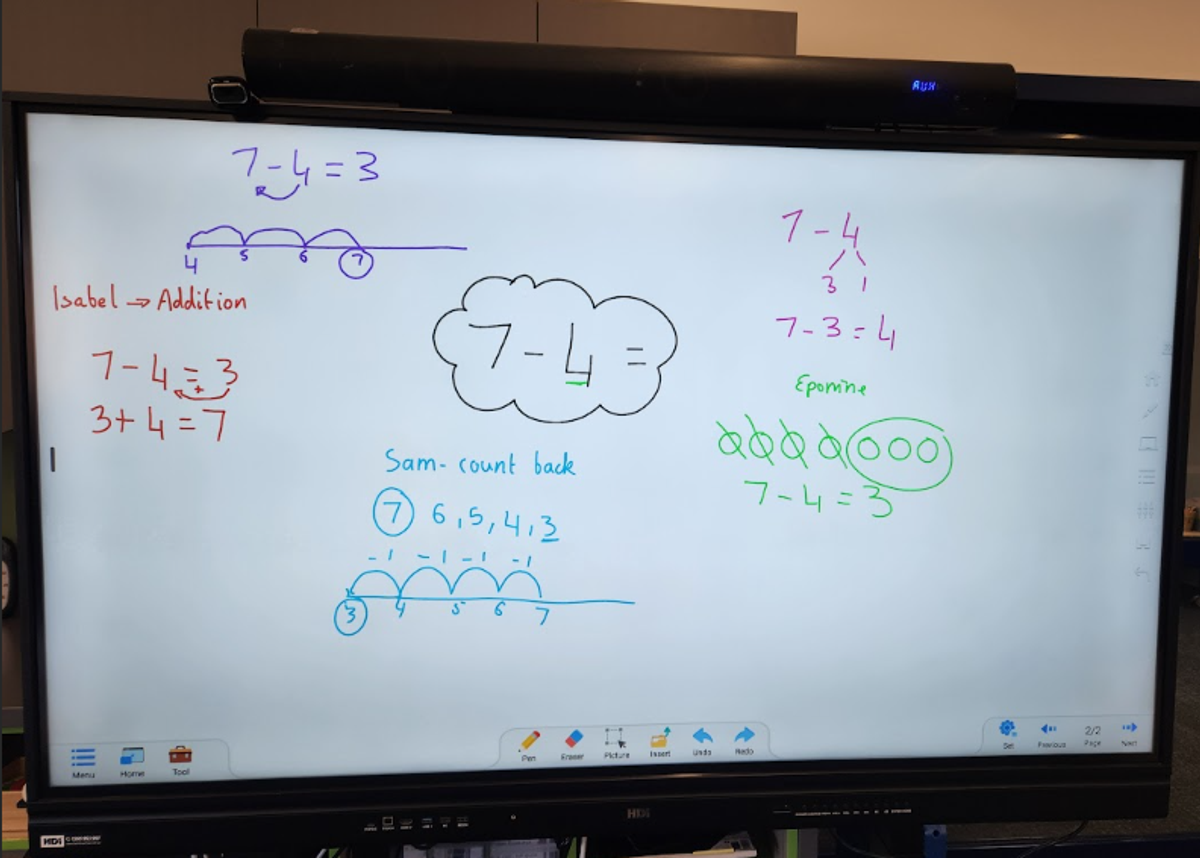 AUX
7 - 4 = 3
4 5 6 7
Isabel → Addition
7 - 4 = 3
+
3 + 4 = 7
7 - 4 =
Sam - count back
7 6, 5, 4, 3
-1 -1 -1 -1
3 4 5 6 7
7 - 4
3 1
7 - 3 = 4
Eponine
7 - 4 = 3
Menu Home Tool
Pen Eraser Picture Insert Undo Redo
Set Previous 2/2 Page Next
HDi
HDi